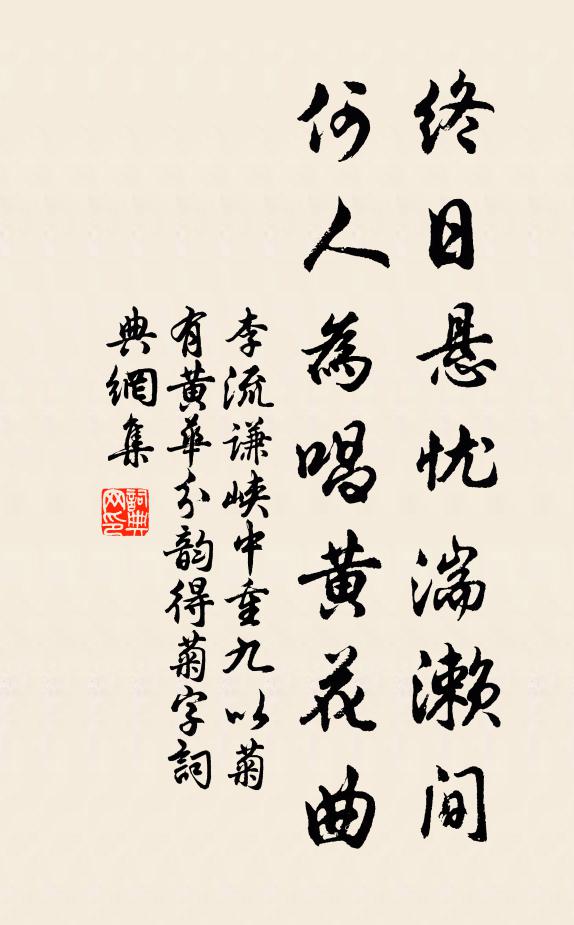 终日悬忧湍濑间
何人為唱黄花曲
李流谦峡中重九以菊
有黄華分韵得菊字詞
典網集
詞典網印